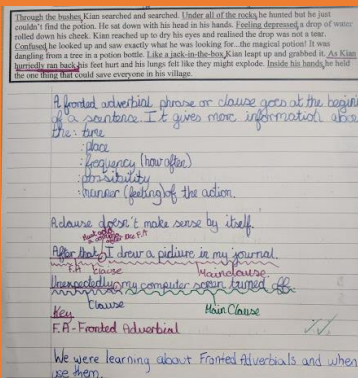 Through the bushes Kian searched and searched. Under all of the rocks he hunted but he just
couldn't find the potion. He sat down with his head in his hands. Feeling depressed a drop of water
rolled down his cheek. Kian reached up to dry his eyes and realised the drop was not a tear.
Confused he looked up and saw exactly what he was looking for...the magical potion! It was
dangling from a tree in a potion bottle. Like a jack-in-the-box Kian leapt up and grabbed it. As Kian
hurriedly ran back his feet hurt and his lungs felt like they might explode. Inside his hands he held
the one thing that could save everyone in his village.
A fronted adverbial phrase or clause goes at the begin
of a sentence. It gives more information abou
the: time
:place
:frequency (how often)
:possibility
:manner (feeling) of the action.
A clause doesn't make sense by itself.
after the F.A
After that, I drew a picture in my journal.
F.A Clause Main clause
Unexpectedly, my computer screen turned off.
Clause Main Clause
Key
F.A - Fronted Adverbial
We were learning about Fronted Adverbials and when
use them.